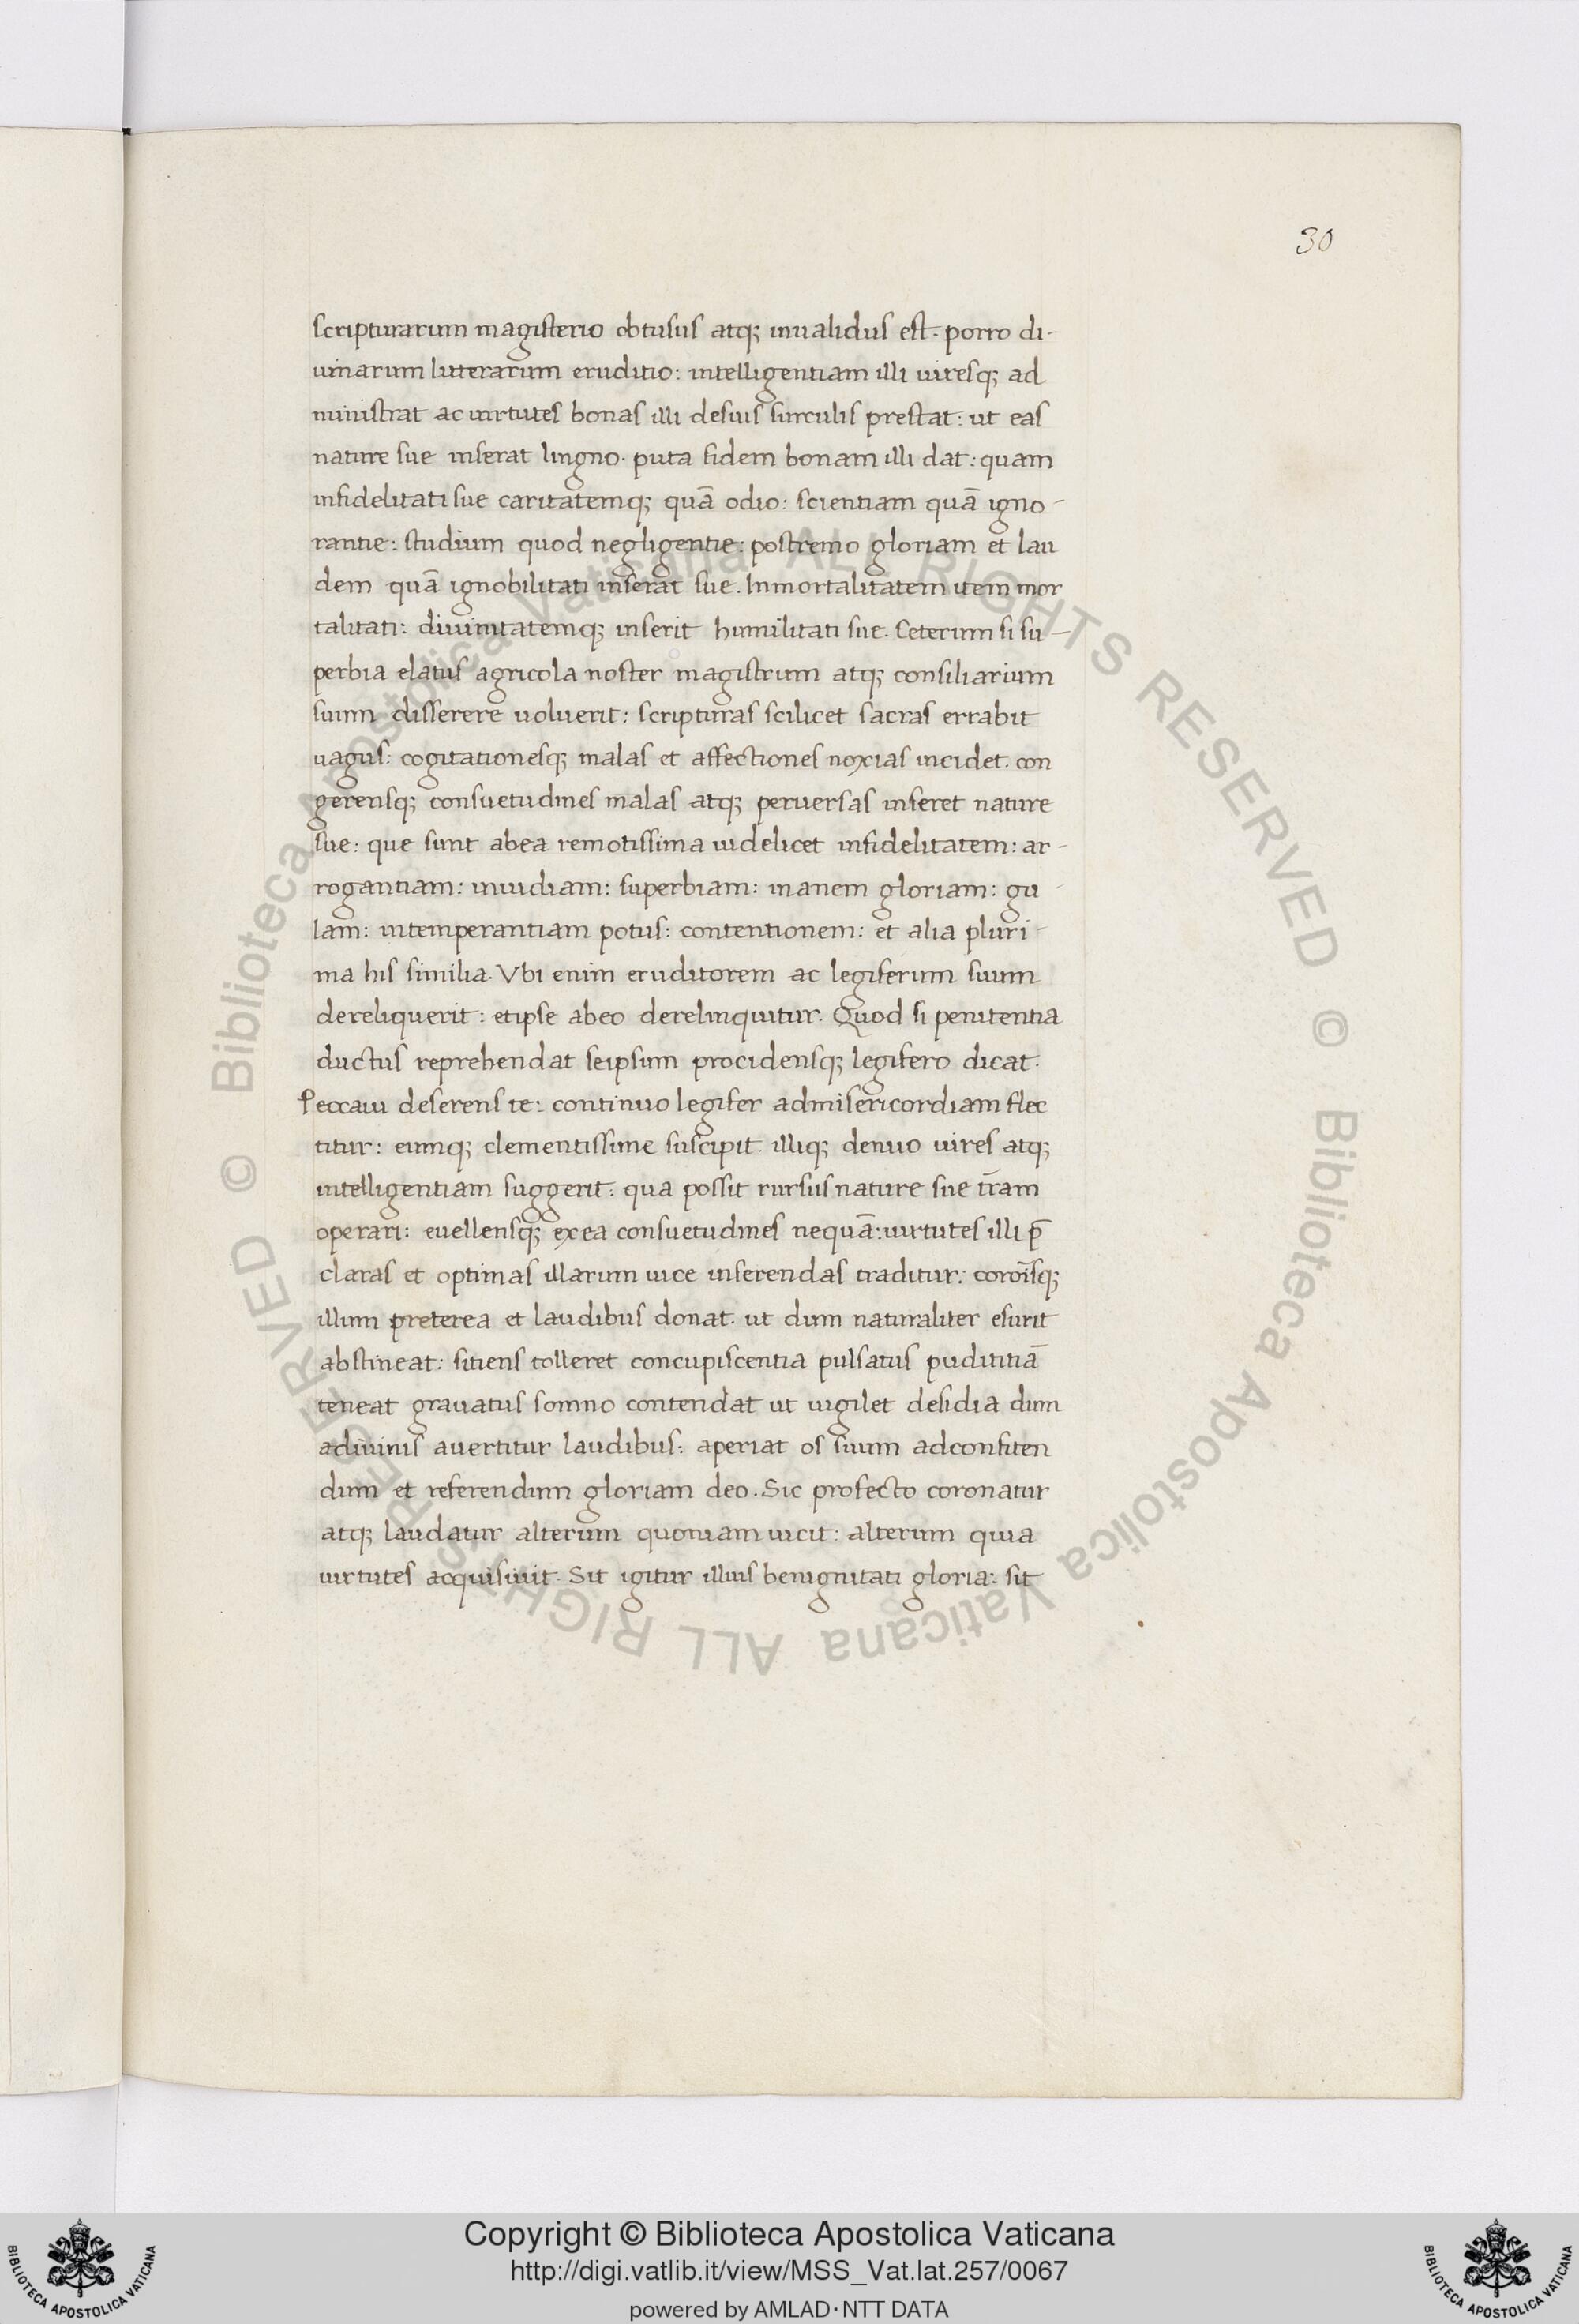 30
scripturarum magisterio obtusus atq; inualidus est. porro di-
uinarum litterarum eruditio: intelligentiam illi uiresq; ad
ministrat ac uirtutes bonas illi desuis surculis prestat: ut eas
nature sue inserat lingno. puta fidem bonam illi dat: quam
infidelitati sue caritatemq; quā odio: scientiam quā igno-
rantie: studium quod negligentie: postremo gloriam et lau
dem quā ignobilitati inserat sue. Inmortalitatem item mor
talitati: diuinitatemq; inserit humilitati sue. Ceterum si su-
perbia elatus agricola noster magistrum atq; consiliarium
suum disserere uoluerit: scripturas scilicet sacras errabit
uagus: cogitationesq; malas et affectiones noxias incidet. con
gerensq; consuetudines malas atq; peruersas inseret nature
sue: que sunt abea remotissima uidelicet infidelitatem: ar-
rogantiam: inuidiam: superbiam: inanem gloriam: gu-
lam: intemperantiam potus: contentionem: et alia pluri-
ma his similia. Vbi enim eruditorem ac legiferum suum
dereliquerit: etipse abeo derelinquitur. Quod si penitentia
ductus reprehendat seipsum procidensq; legifero dicat.
Peccaui deserens te: continuo legifer admisericordiam flec
titur: eumq; clementissime suscipit. illiq; denuo uires atq;
intelligentiam suggerit: qua possit rursus nature sue t̄ram
operari: euellensq; exea consuetudines nequā: uirtutes illi p̄
claras et optimas illarum uice inserendas traditur: coroīsq;
illum preterea et laudibus donat. ut dum naturaliter esurit
abstineat: sitiens tolleret concupiscentia pulsatus pudititiā
teneat grauatus somno contendat ut uigilet desidia dum
adiuinis auertitur laudibus: aperiat os suum adconfiten
dum et referendum gloriam deo. Sic profecto coronatur
atq; laudatur alterum quoniam uicit: alterum quia
uirtutes acquisiuit. Sit igitur illius benignitati gloria: sit
© Biblioteca Apostolica Vaticana ALL RIGHTS RESERVED © Biblioteca Apostolica Vaticana ALL RIGHTS RESERVED
Copyright © Biblioteca Apostolica Vaticana
http://digi.vatlib.it/view/MSS_Vat.lat.257/0067
powered by AMLAD·NTT DATA
BIBLIOTECA APOSTOLICA VATICANA
BIBLIOTECA APOSTOLICA VATICANA